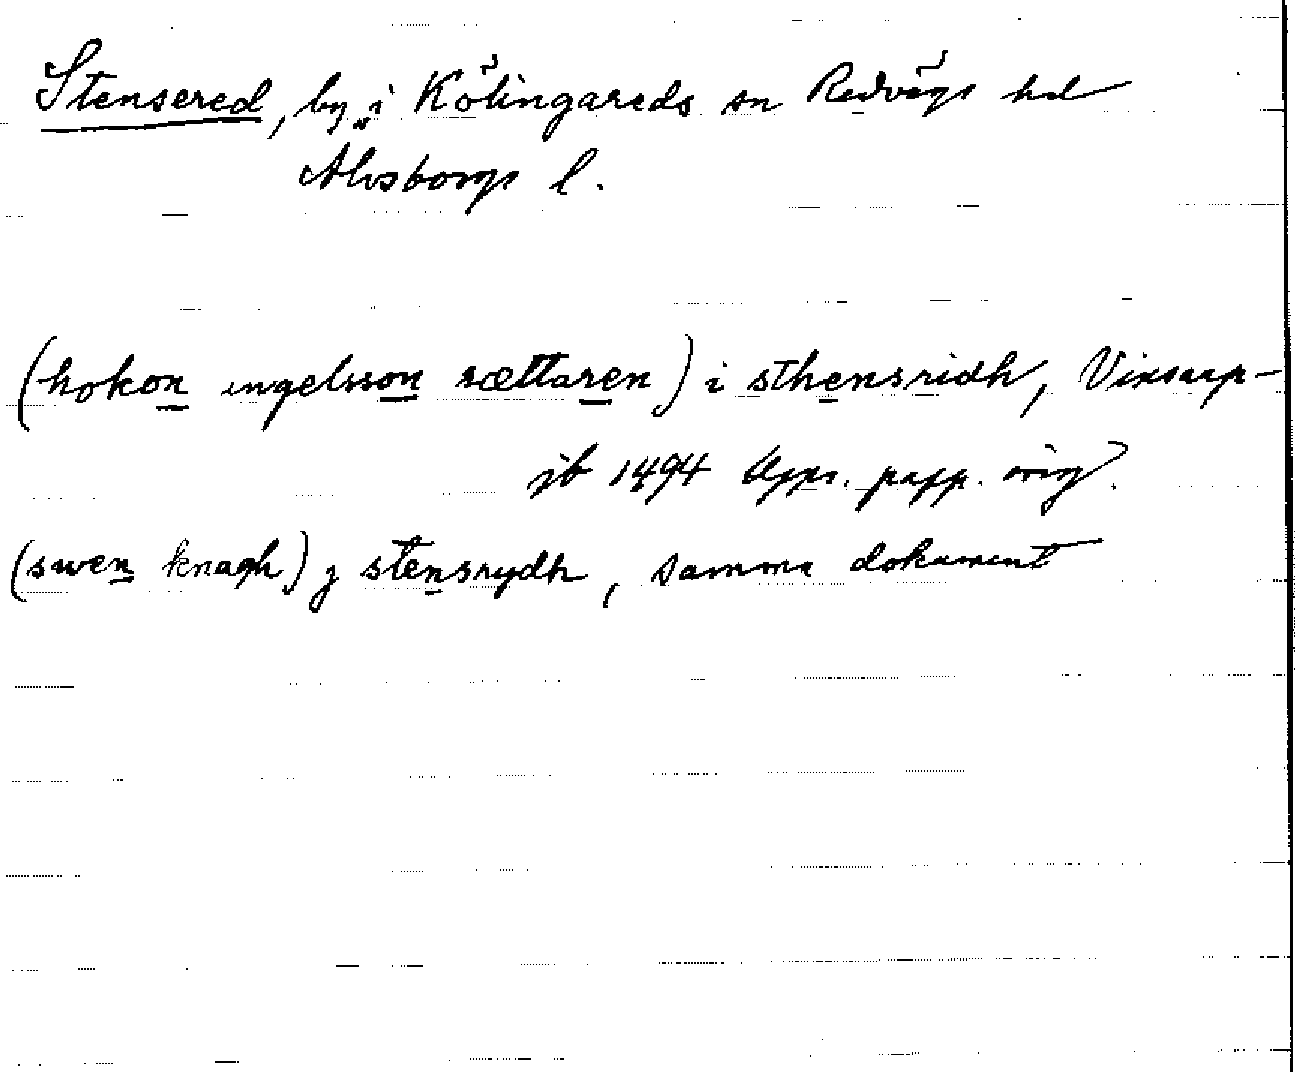 Stensered, by i Kölingareds sn Redvägs hd
Älvsborgs l.
(hokon ingelsson sættaren) i sthensridh, Vinsarp-
jb 1494 Upps. papp. orig.
(swen knagh) j stensrydh, samma dokument